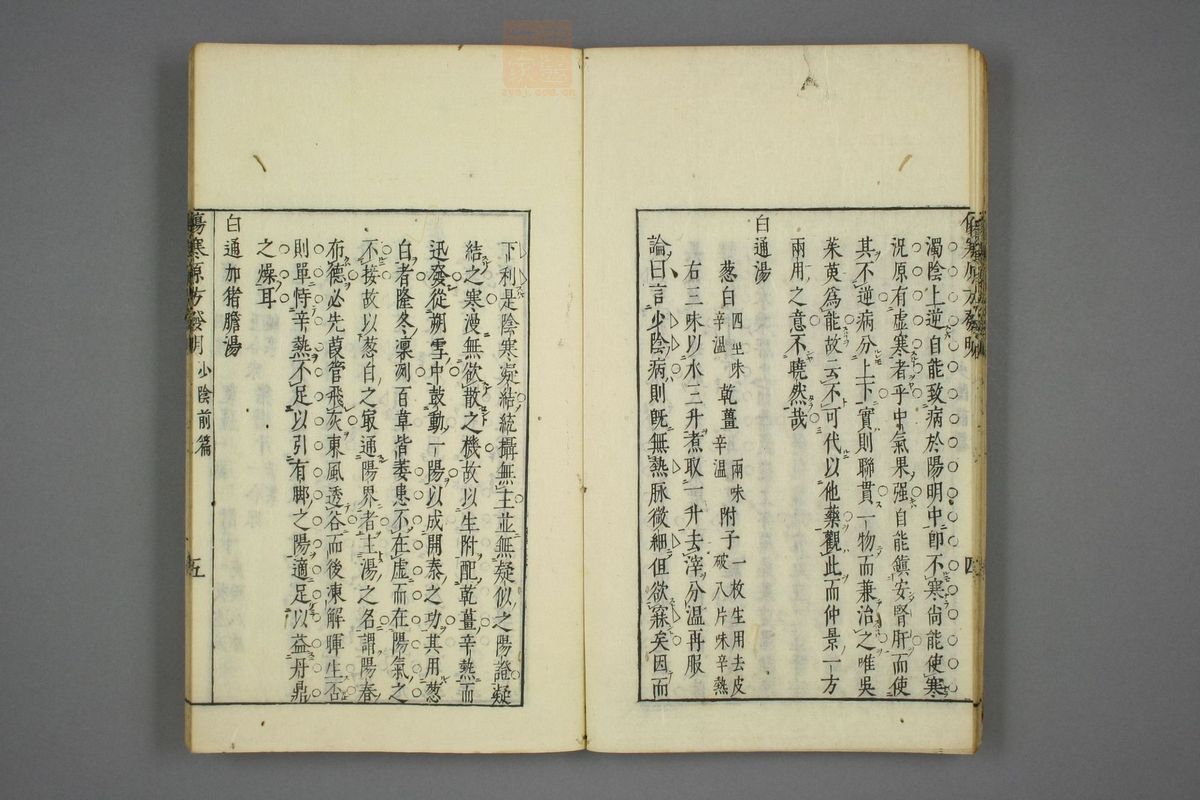 濁陰上逆自能致病於陽明中即不寒尙能使寒
况原有虛寒者乎中氣果强自能鎭安腎肝而使
其不逆病分上下實則聯貫一物而兼治之唯吳
茱萸爲能故云不可代以他藥觀此而仲景一方
兩用之意不曉然哉
白通湯
葱白 四莖味辛溫 乾薑 兩味辛溫 附子 一枚生用去皮破八片味辛熱
右三味以水三升煮取一升去滓分温再服
論曰言少陰病則旣無熱脉微細但欲寐矣因而
四
下利是陰寒凝結統攝無主並無疑似之陽證凝
結之寒漫無欲散之機故以生附配乾薑辛熱而
迅發從朔雪中鼓動一陽以成開泰之功其用葱
白者隆冬凜冽百草皆萎患不在虛而在陽氣之
不接故以葱白之最通陽界者主湯之名謂陽春
布德必先葭管飛灰東風透谷而後凍解暉生否
則單恃辛熱不足以引有脚之陽適足以益丹鼎
之燥耳
白通加猪膽湯
傷寒原方發明 少陰前篇 五